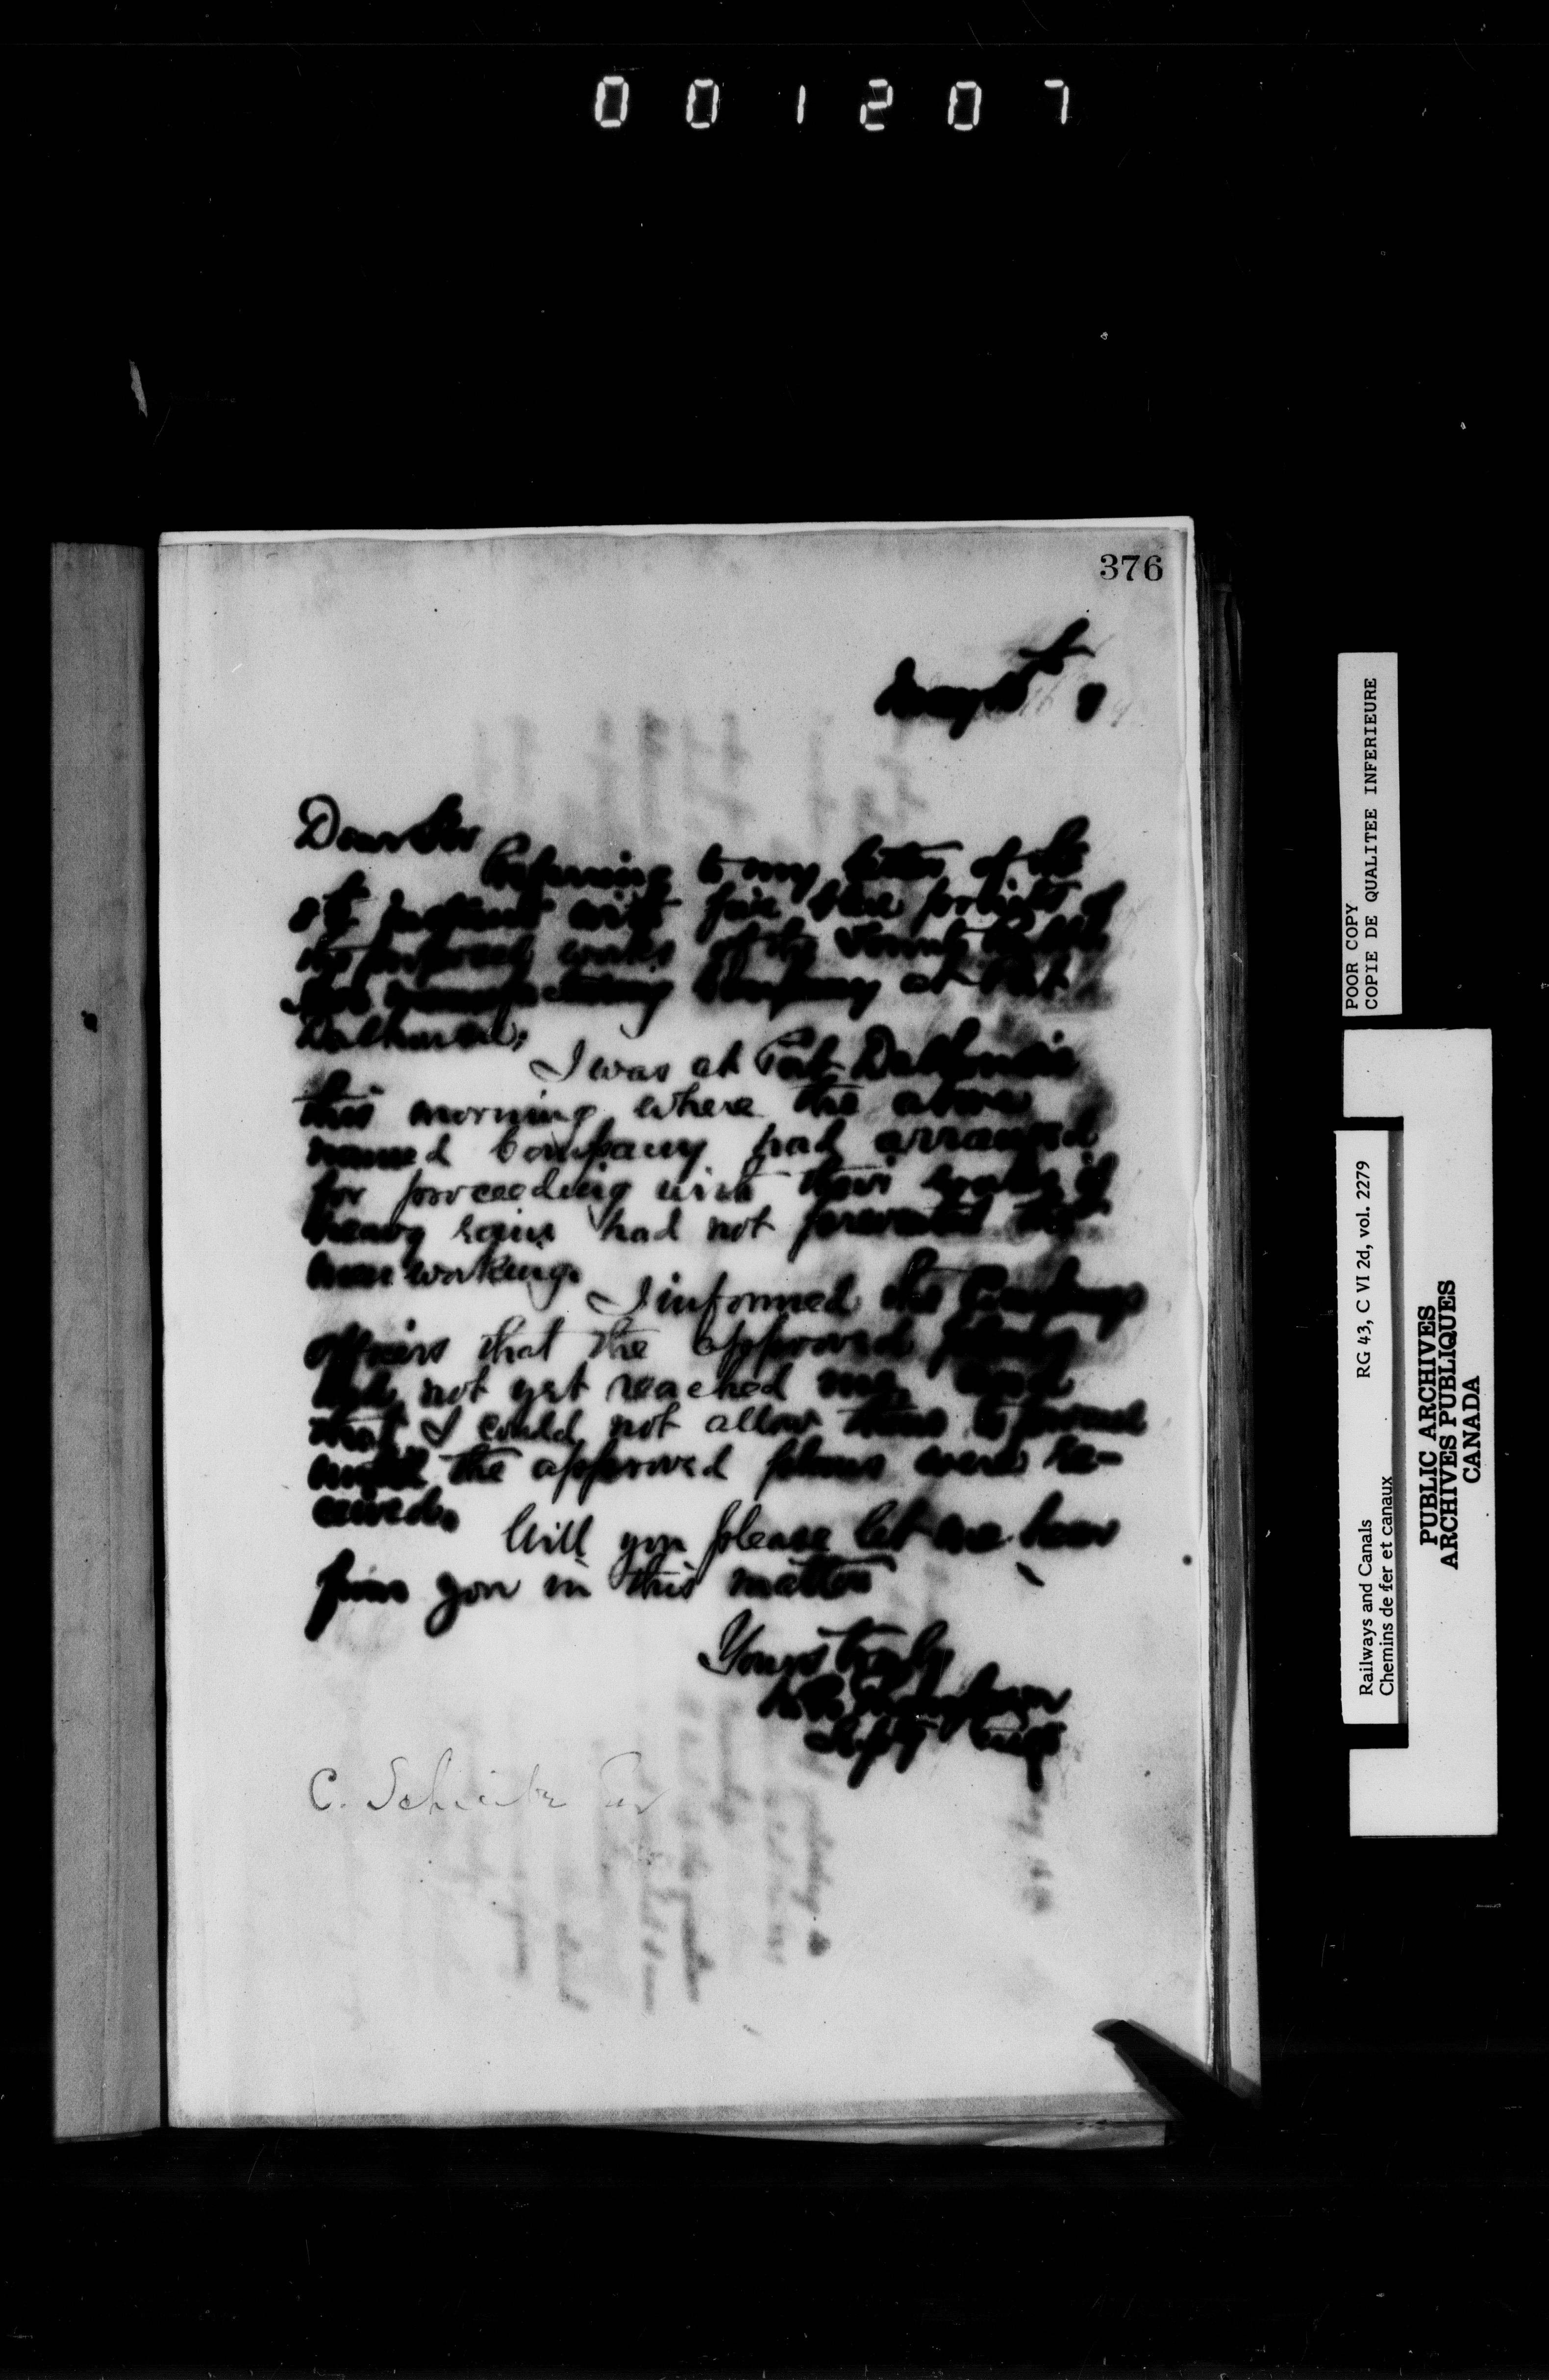 001207
376
May 16th 9
Dear Sir
Referring to my letter of the
8th Instant with five blue prints of
the proposed works of the Toronto Rubber
Shoe Manufacturing Company at Port
Dalhousie;
I was at Port Dalhousie
this morning where the above
named Company had arranged
for proceeding with their works if
heavy rains had not prevented the
men working.
I informed the Companys
officers that the approved plans
had not yet reached me, and
that I could not allow them to proceed
until the approved plans were re-
ceived.
Will you please let me hear
from you in this matter
Yours truly
Supt Engr
C. Schreiber Esq
POOR COPY
COPIE DE QUALITEE INFERIEURE
Railways and Canals RG 43, C VI 2d, vol. 2279
Chemins de fer et canaux
PUBLIC ARCHIVES
ARCHIVES PUBLIQUES
CANADA